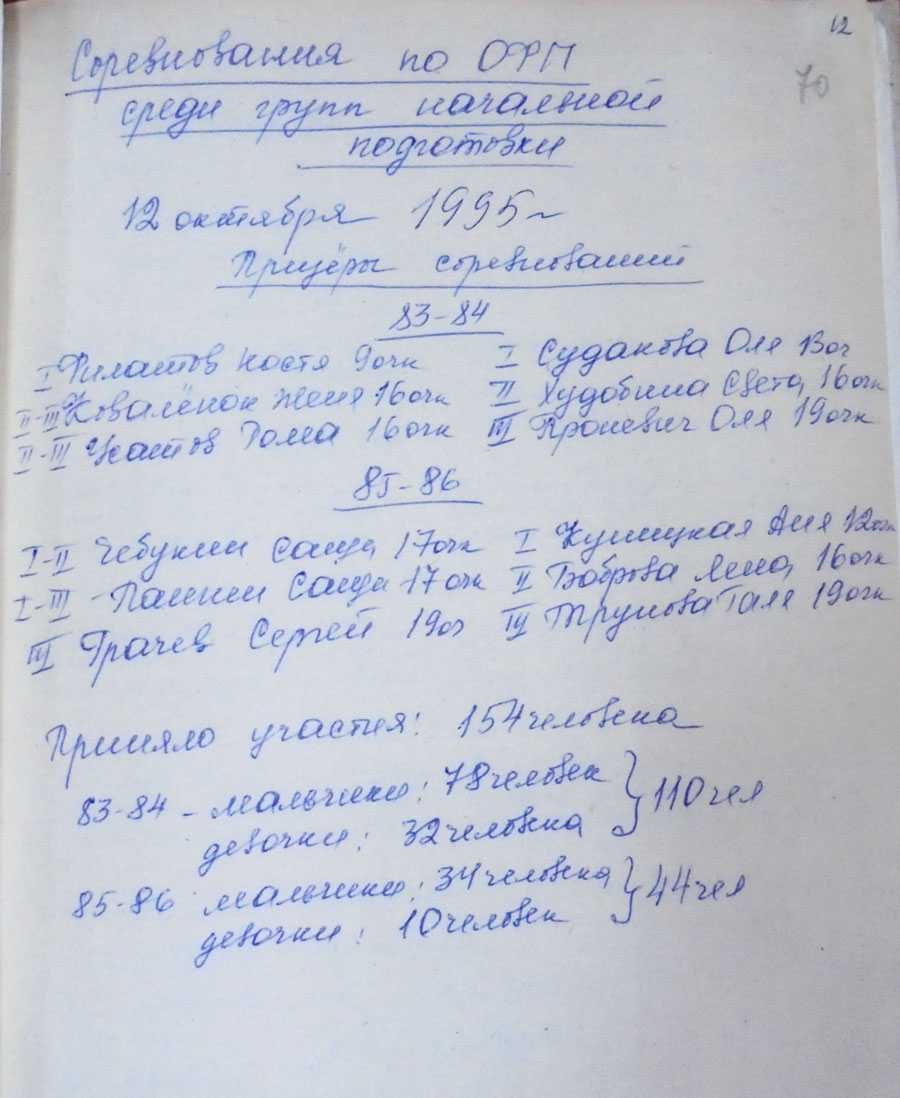 12
70
Соревнования по ОФП
среди групп начальной
подготовки
12 октября 1995г
Призёры соревнований
83-84
I Филатов Костя 9очк I Судакова Оля 13оч
II-III Коваленок Женя 16очк II Худобина Света 16очк
II-III Усатов Рома 16очк III Проневич Оля 19очк
85-86
I-II Чебукин Саша 17очк I Куницкая Аня 12очк
I-III Панин Саша 17очк II Боброва Лена 16очк
III Грачев Сергей 19оч III Трунова Галя 19очк
Приняло участия: 154человека
83-84 - мальчики: 78человек
девочки: 32человека } 110чел
85-86 мальчики: 34человека
девочки: 10человек } 44чел